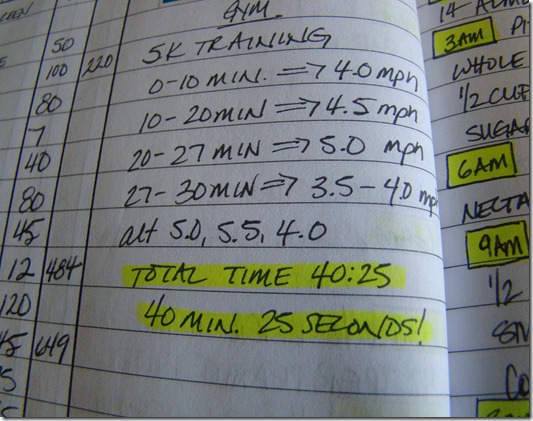 GYM
50
5K TRAINING
100 220
0-10 MIN. => 4.0 mph
80
10-20 MIN => 4.5 mph
7
20-27 MIN => 5.0 mph
40
27-30 MIN => 3.5-4.0
80
alt 5.0, 5.5, 4.0
45
12 484
TOTAL TIME 40:25
120
40 MIN. 25 SECONDS!
649
14
3AM
WHOLE
1/2
6AM
9AM
1/2